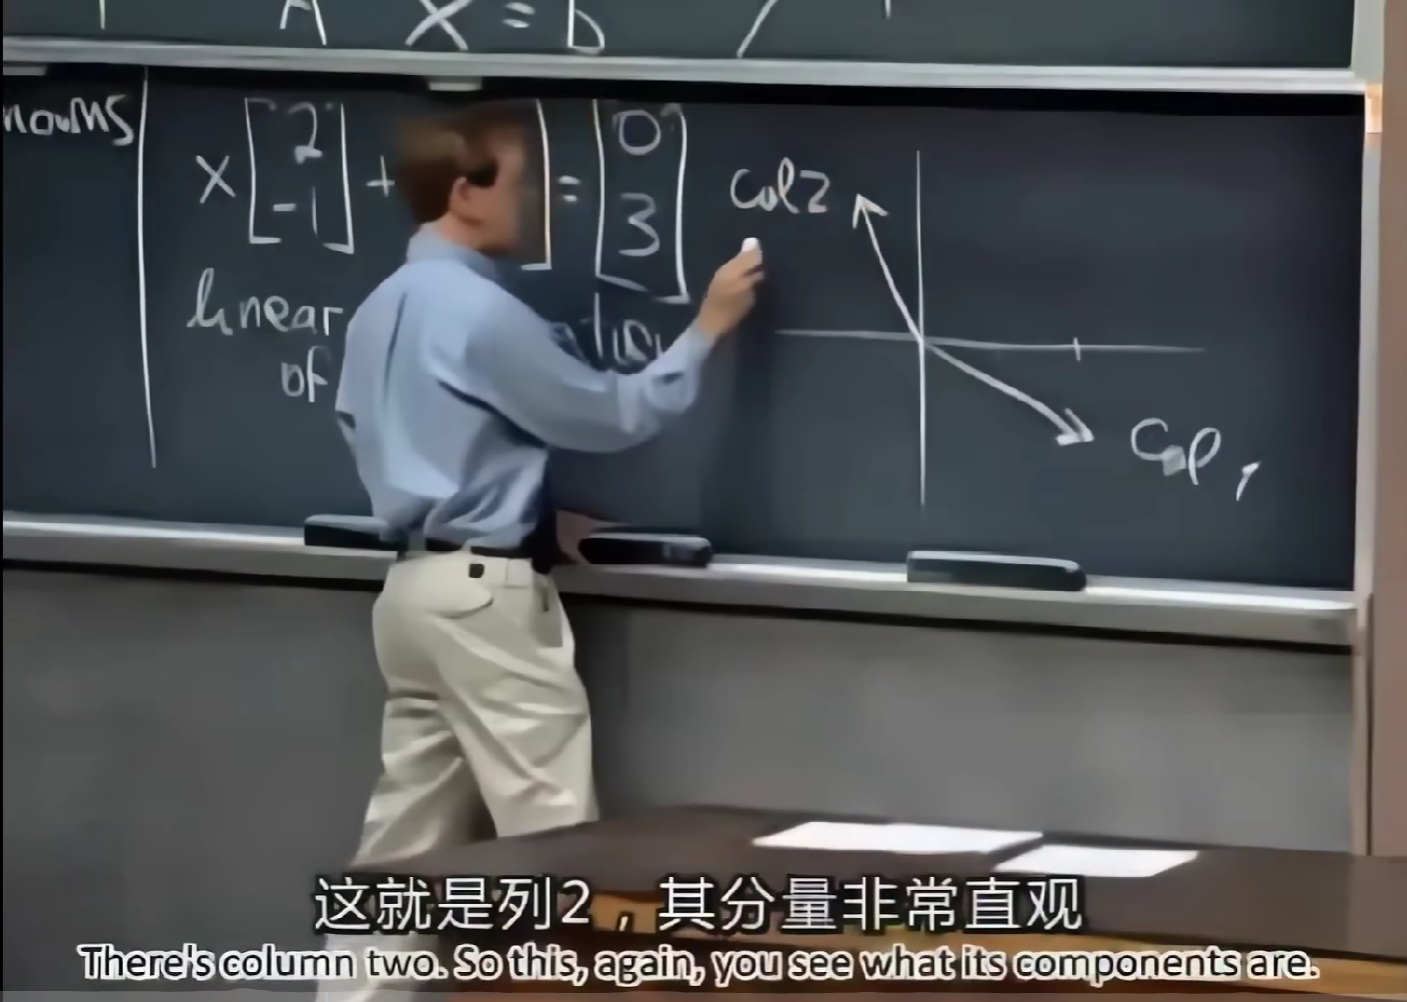 A X = b
x [2 -1] + ] = [0 3]
linear
of
col 2
Col 1
这就是列2，其分量非常直观
There's column two. So this, again, you see what its components are.